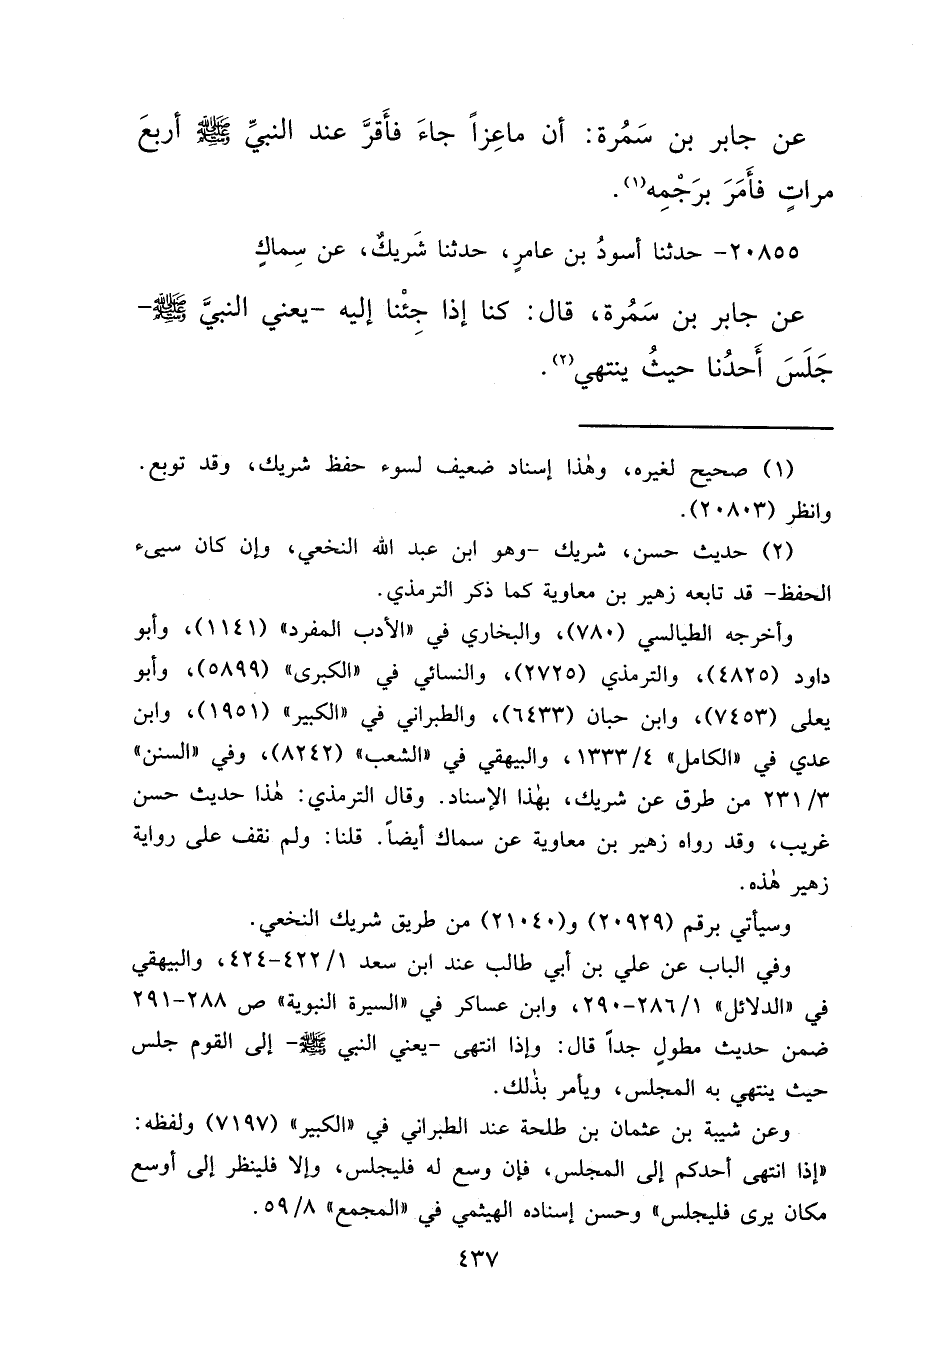 عن جابر بن سَمُرة: أن ماعِزاً جاءَ فأَقرَّ عند النبيِّ ﷺ أربعَ
مراتٍ فأَمَرَ برَجْمِه(١).
٢٠٨٥٥- حدثنا أسودُ بن عامرٍ، حدثنا شَريكٌ، عن سِماكٍ
عن جابر بن سَمُرة، قال: كنا إذا جِئْنا إليه -يعني النبيَّ ﷺ-
جَلَسَ أَحدُنا حيثُ ينتهي(٢).
(١) صحيح لغيره، وهٰذا إسناد ضعيف لسوء حفظ شريك، وقد توبع.
وانظر (٢٠٨٠٣).
(٢) حديث حسن، شريك -وهو ابن عبد الله النخعي، وإن كان سيىء
الحفظ- قد تابعه زهير بن معاوية كما ذكر الترمذي.
وأخرجه الطيالسي (٧٨٠)، والبخاري في «الأدب المفرد» (١١٤١)، وأبو
داود (٤٨٢٥)، والترمذي (٢٧٢٥)، والنسائي في «الكبرى» (٥٨٩٩)، وأبو
يعلى (٧٤٥٣)، وابن حبان (٦٤٣٣)، والطبراني في «الكبير» (١٩٥١)، وابن
عدي في «الكامل» ١٣٣٣/٤، والبيهقي في «الشعب» (٨٢٤٢)، وفي «السنن»
٢٣١/٣ من طرق عن شريك، بهٰذا الإسناد. وقال الترمذي: هٰذا حديث حسن
غريب، وقد رواه زهير بن معاوية عن سماك أيضاً. قلنا: ولم نقف على رواية
زهير هٰذه.
وسيأتي برقم (٢٠٩٢٩) و(٢١٠٤٠) من طريق شريك النخعي.
وفي الباب عن علي بن أبي طالب عند ابن سعد ٤٢٢/١-٤٢٤، والبيهقي
في «الدلائل» ٢٨٦/١-٢٩٠، وابن عساكر في «السيرة النبوية» ص ٢٨٨-٢٩١
ضمن حديث مطولٍ جداً قال: وإذا انتهى -يعني النبي ﷺ- إلى القوم جلس
حيث ينتهي به المجلس، ويأمر بذٰلك.
وعن شيبة بن عثمان بن طلحة عند الطبراني في «الكبير» (٧١٩٧) ولفظه:
«إذا انتهى أحدكم إلى المجلس، فإن وسع له فليجلس، وإلا فلينظر إلى أوسع
مكان يرى فليجلس» وحسن إسناده الهيثمي في «المجمع» ٥٩/٨.
٤٣٧